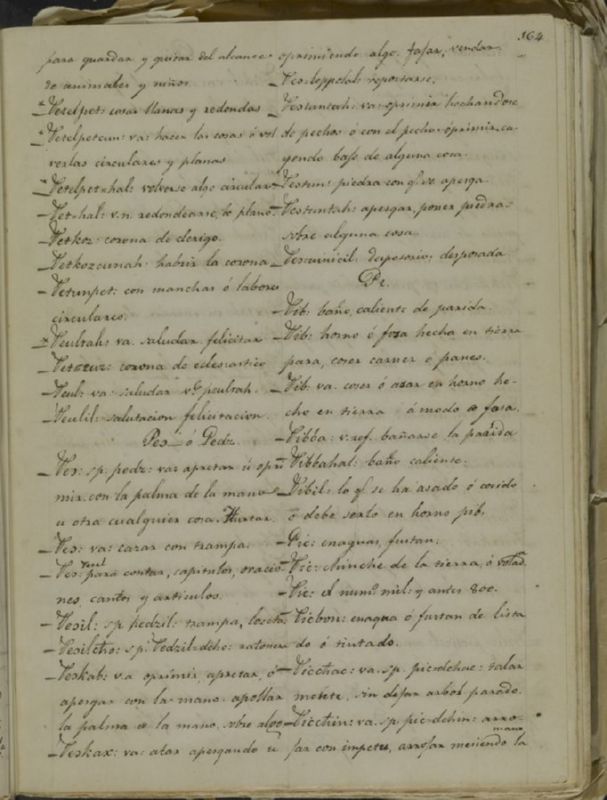 164
para guardar y quitar del alcance
de animales y niños.
Petelpet: cosas llanas y redondas
Petelpetcun: va: hacer las cosas ó vol
verlas circulares y planas
Petelpet-hal: volverse algo circular
Pet-hal: v.n. redondearse, lo plano
Petkoz: corona de clerigo.
Petkozcunah: habrir la corona
Petunpet: con manchas ó labores
circulares.
Peulrah: va: saludar felicitar
corona de eclesiastico
Peul: va: saludar peulrah.
Peulil: salutacion felicitacion.
Pez ó Pedz.
Pez: sp. pedz: va: apretar ú opri
mir con la palma de la mano
u otra cualquier cosa. Hurtar.
Pez: va: cazar con trampa.
Pez: para contar, capitulos, oracio
nes, cantos y articulos.
Pezil: sp. pedzil: trampa, loseta
Pezilcħo: sp. Pedzil-dcho: ratonera
Pezkab: v.a oprimir, apretar, ó
apezgar con la mano. apollar
la palma de la mano, sobre algo
Pezkax: va: atar apezgando u
oprimiendo algo. fajar, vendar
reportarse.
Peztantah: va: oprimir hechandose
de pechos ó con el pecho. oprimir ca-
yendo bajo de alguna cosa.
Peztun: piedra con q.e se apezga.
Peztuntah: apezgar, poner piedra
sobre alguna cosa.
desposorio, desposada
Pi.
Pib: baño, caliente de parida.
Pib: horno ó foza hecha en tierra
para, cozer carnes ó panes.
Pib: va: cozer ó azar en horno he-
cho en tierra á modo de foza.
Pibba: v.ref. bañarse la parida
Pibbahal: baño caliente.
Pibil: lo q.e se ha asado ó cosido
ó debe serlo en horno pib.
Pic: enaguas, fustan.
Pic: chinche de la tierra, ó volad.
Pic: el num.o mil: y antes 800.
Picbon: enagua ó fustan de lista
do ó tintado.
Piccħac: va: sp. pic-dchac: talar
monte, sin dejar arbol parado.
Piccħin: va: sp. pic-dchin: arro-
jar con impetu, arrojar meniendo la
mano